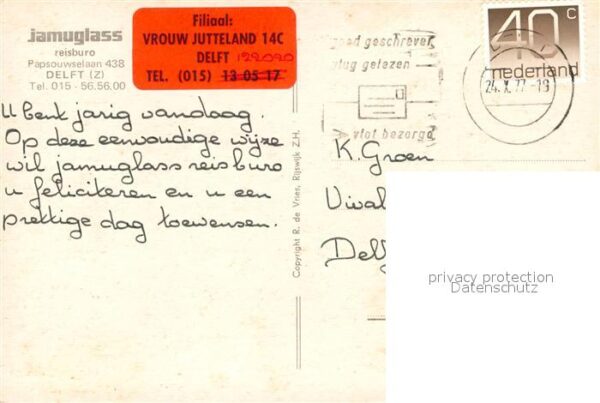 jamuglass
reisburo
Papsouwselaan 438
DELFT (Z)
Tel. 015 - 56.56.00
Filiaal:
VROUW JUTTELAND 14C
DELFT 122020
TEL. (015) 13 05 17
goed geschreven
vlug gelezen
vlot bezorgd
40 c
nederland
24.X.77.-19
U bent jarig vandaag.
Op deze eenvoudige wijze
wil jamuglass reisburo
u feliciteren en u een
prettige dag toewensen.
Copyright R. de Vries, Rijswijk Z.H.
K. Groen
Vival
Delf
privacy protection
Datenschutz